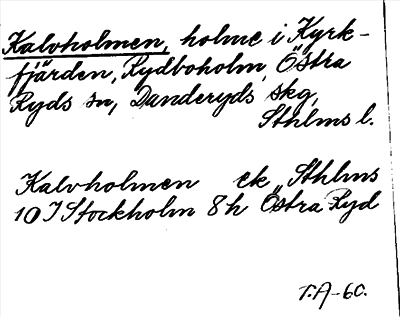 Kalvholmen, holme i Kyrk-
fjärden, Rydboholm, Östra
Ryds sn, Danderyds skg,
Sthlms l.
Kalvholmen ek Sthlms
10 I Stockholm 8h Östra Ryd
T.A-60.